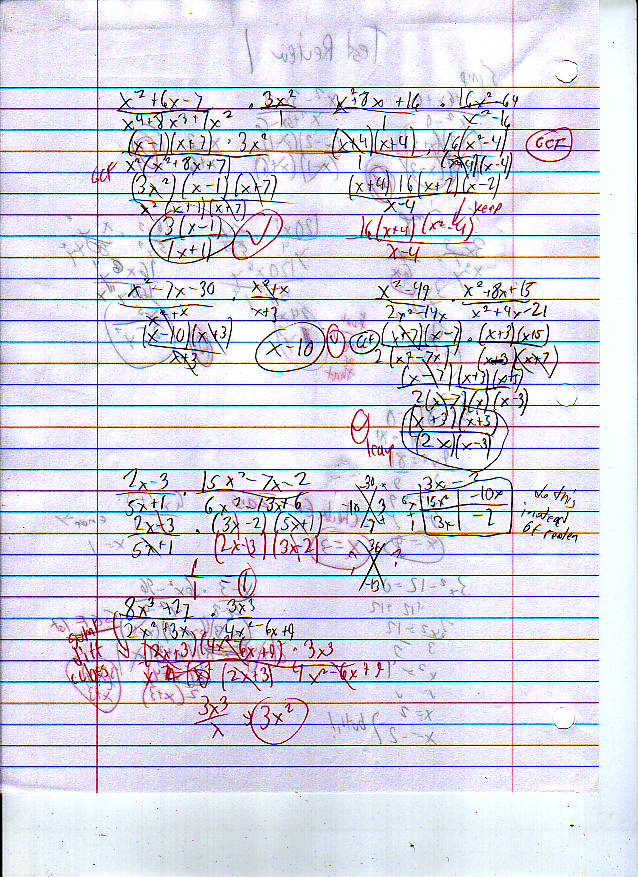 x² + 6x - 7 / x⁴ + 8x³ + 7x² · 3x² / 1
(x-1)(x+7) · 3x² / x²(x² + 8x + 7)
GCF
(3x²)(x-1)(x+7) / x²(x+1)(x+7)
3(x-1) / (x+1) ✓
x² + 8x + 16 / 1 · 16x² - 64 / x² - 16
(x+4)(x+4) / 1 · 16(x² - 4) / (x+4)(x-4)
GCF
(x+4) 16(x+2)(x-2) / x-4
keep
16(x+4)(x²-4) / x-4
x² - 7x - 30 / x² + x · x² + x / x+3
(x-10)(x+3) / x+3
x-10
x² - 49 / 2x² - 14x · x² + 8x + 15 / x² + 4x - 21
(x+7)(x-7) / 2(x² - 7x) · (x+3)(x+5) / (x-3)(x+7)
(x-7)(x+3)(x+5)
2(x-7)(x)(x-3)
(x+3)(x+5) / (2x)(x-3)
leave
2x-3 / 5x+1 · 15x² - 7x - 2 / 6x² - 13x + 6
2x-3 / 5x+1 · (3x-2)(5x+1) / (2x-3)(3x-2)
-30
-10 3
-7
3x -2
5x 15x² -10x
1 3x -2
do this
instead
36
-13
1 = 1
8x³ + 27 / 2x² + 3x · 3x³ / 4x² - 6x + 9
sum
diff
cubes
(2x+3)(4x² - 6x + 9) · 3x³
(x) (2x+3) 4x² - 6x + 9
3x³ / x
3x²